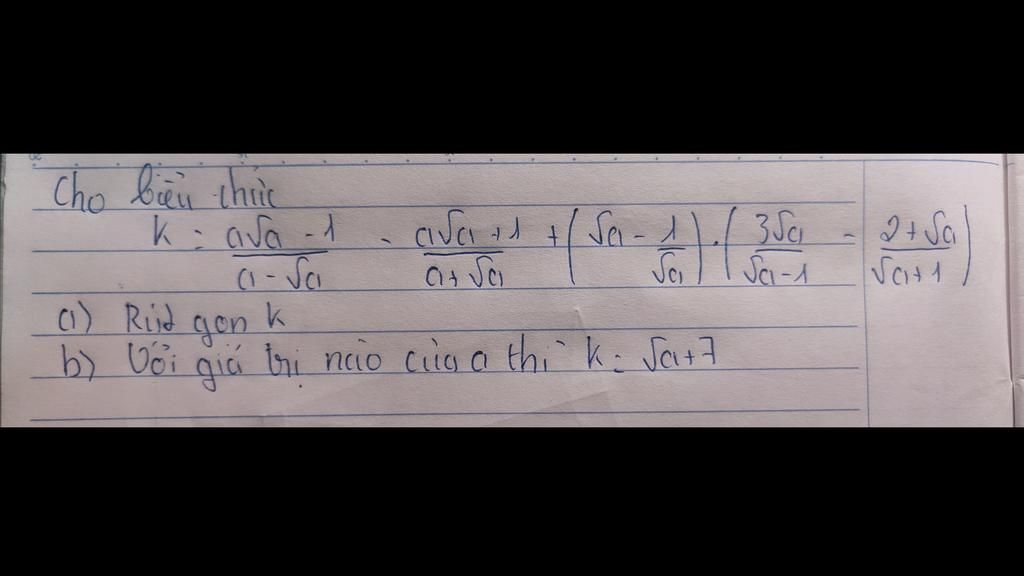 Cho biểu thức
K = \frac{a\sqrt{a} - 1}{a - \sqrt{a}} - \frac{a\sqrt{a} + 1}{a + \sqrt{a}} + \left(\sqrt{a} - \frac{1}{\sqrt{a}}\right) \cdot \left(\frac{3\sqrt{a}}{\sqrt{a} - 1} - \frac{2 + \sqrt{a}}{\sqrt{a} + 1}\right)
a) Rút gọn K
b) Với giá trị nào của a thì K = \sqrt{a} + 7